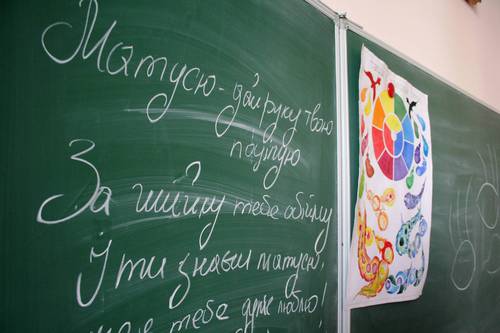 Матусю - дай руку твою
поцілую
За шийку тебе обійму
І ти знаєш матусю,
що я тебе дуже люблю!